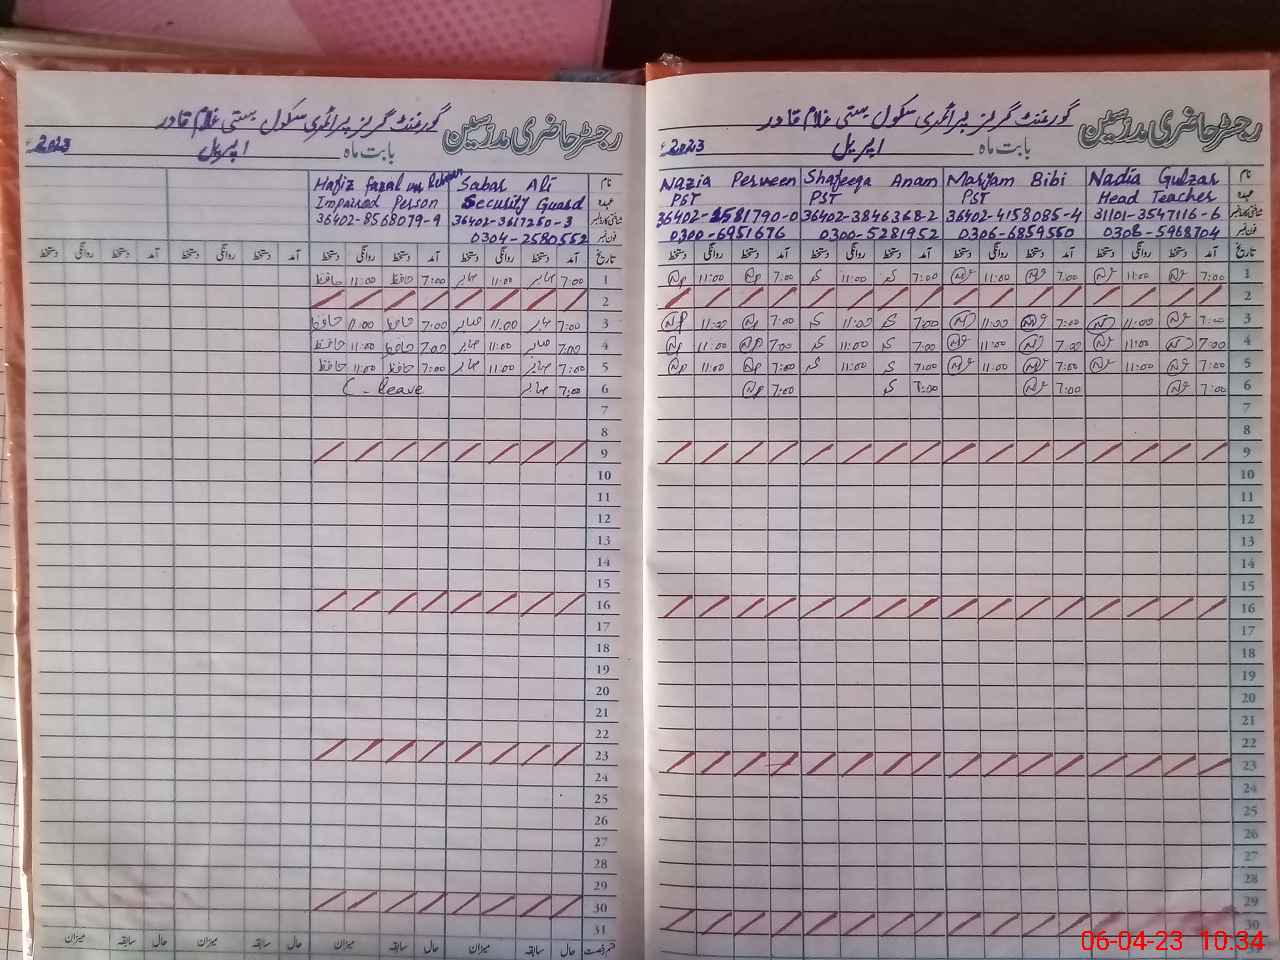 رجسٹر حاضری مدرسین گورنمنٹ گرلز پرائمری سکول بستی غلام قادر
بابت ماہ اپریل 2023ء
نام Nadia Gulzar Maryam Bibi Shafeeqa Anam Nazia Perveen
عہدہ Head Teacher PST PST PST
شناختی کارڈ نمبر 31101-3547116-6 36402-4158085-4 36402-3846368-2 36402-1581790-0
فون نمبر 0306-5968704 0306-6859550 0300-5281952 0300-6951676
تاریخ آمد دستخط روانگی دستخط آمد دستخط روانگی دستخط آمد دستخط روانگی دستخط آمد دستخط روانگی دستخط
1 7:00 11:00 7:00 11:00 7:00 11:00 7:00 11:00
2
3 7:00 11:00 7:00 11:00 7:00 11:00 7:00 11:00
4 7:00 11:00 7:00 11:00 7:00 11:00 7:00 11:00
5 7:00 11:00 7:00 11:00 7:00 11:00 7:00 11:00
6 7:00 7:00 7:00 7:00
7
8
9
10
11
12
13
14
15
16
17
18
19
20
21
22
23
24
25
26
27
28
29
30
رجسٹر حاضری مدرسین گورنمنٹ گرلز پرائمری سکول بستی غلام قادر
بابت ماہ اپریل 2023ء
نام Sabar Ali Hafiz fazal ur Rehman
عہدہ Security Guard Impaired Person
شناختی کارڈ نمبر 36402-3617250-3 36402-8568079-9
فون نمبر 0304-2580552
تاریخ آمد دستخط روانگی دستخط آمد دستخط روانگی دستخط آمد دستخط روانگی دستخط آمد دستخط روانگی دستخط
1 7:00 صابر 11:00 صابر 7:00 حافظ 11:00 حافظ
2
3 7:00 صابر 11:00 صابر 7:00 حافظ 11:00 حافظ
4 7:00 صابر 11:00 صابر 7:00 حافظ 11:00 حافظ
5 7:00 صابر 11:00 صابر 7:00 حافظ 11:00 حافظ
6 7:00 صابر C-leave
7
8
9
10
11
12
13
14
15
16
17
18
19
20
21
22
23
24
25
26
27
28
29
30
31
قسم رخصت حال سابقہ میزان حال سابقہ میزان حال سابقہ میزان حال سابقہ میزان
06-04-23 10:34